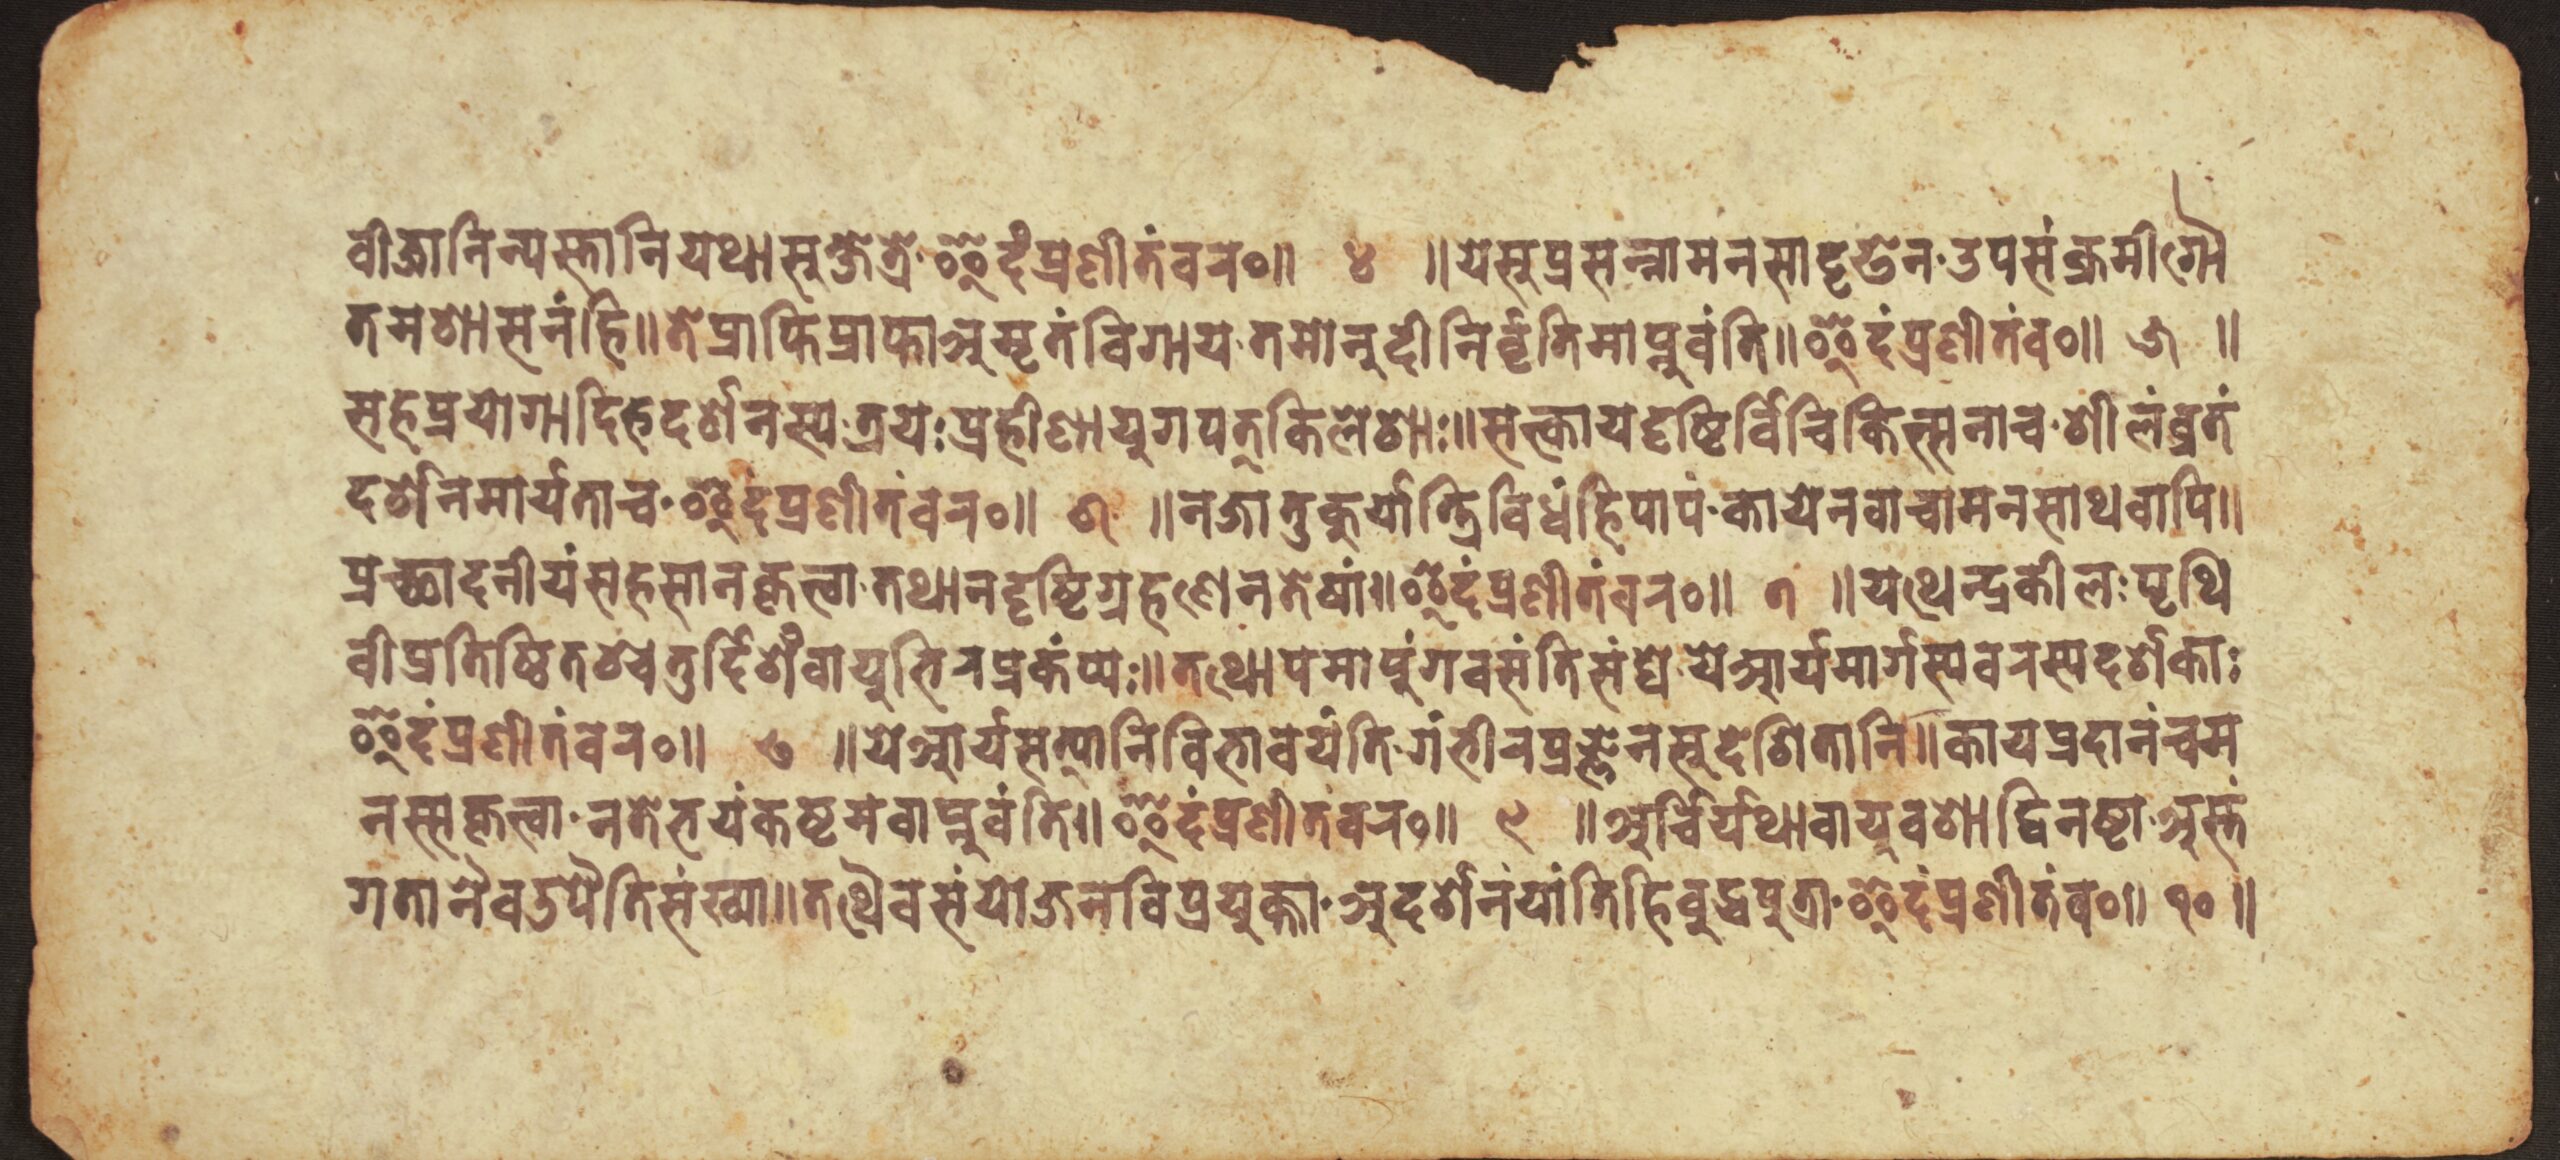 वीजानिन्यस्तानियथासुक्षेत्रे·इदंप्रणीतंवर०॥ ४ ॥येसुप्रसन्नामनसादृढेन·उपसंक्रमीगौ
तमशासनंहि॥तेप्राप्तिप्राप्ताअमृतंविगाय·तमोनुदीनिर्वृतिमाप्नुवंति॥इदंप्रणीतंव०॥ ५ ॥
सहप्रयोगादिहदर्शनस्य·त्रयःप्रहीणायुगपत्किलेशाः॥सत्कायदृष्टिर्विचिकित्सनाच·शीलंव्रतं
दर्शनमार्यताच·इदंप्रणीतंवर०॥ ६ ॥नजातुकुर्यात्त्रिविधंहिपापं·कायेनवाचामनसाथवापि॥
प्रच्छादनीयंसहसानकृत्वा·तथानदृष्टिग्रहणेनतेषां॥इदंप्रणीतंवर०॥ ७ ॥यथेन्द्रकीलःपृथि
वीप्रतिष्ठितश्चतुर्दिशंवायुभिरप्रकंप्यः॥तथोपमापुंगवसंतिसंघे·येआर्यमार्गस्यवरस्यदर्शकाः
इदंप्रणीतंवर०॥ ८ ॥येआर्यसत्यानिविभावयंति·गंभीरप्रज्ञेनसुदेशितानि॥कायप्रदानंचम
नस्सकृत्वा·नतेभयंकष्टमवाप्नुवंति॥इदंप्रणीतंवर०॥ ९ ॥अर्चिर्यथावायुवशाद्विनष्टा·अस्तं
गतानैवउपैतिसंख्या॥तथैवसंयोजनविप्रयुक्ता·अदर्शनंयांतिहिबुद्धपुत्रा·इदंप्रणीतंव०॥ १० ॥